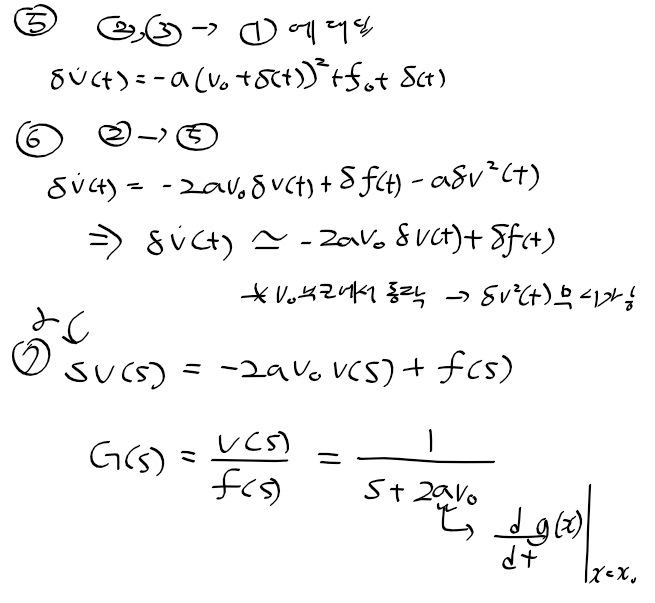 ⑤ ②,③ → ① 에 대입
δv̇(t) = -a(v₀ + δ(t))² + f₀ + δ(t)
⑥ ② → ⑤
δv̇(t) = -2av₀δv(t) + δf(t) - aδv²(t)
⇒ δv̇(t) ≃ -2av₀ δv(t) + δf(t)
* v₀ 부근에서 동작 → δv²(t) 무시가능
⑦ sv(s) = -2av₀ v(s) + f(s)
G(s) = v(s)/f(s) = 1/(s + 2av₀)
↳ d/dt g(x)|x=x₀